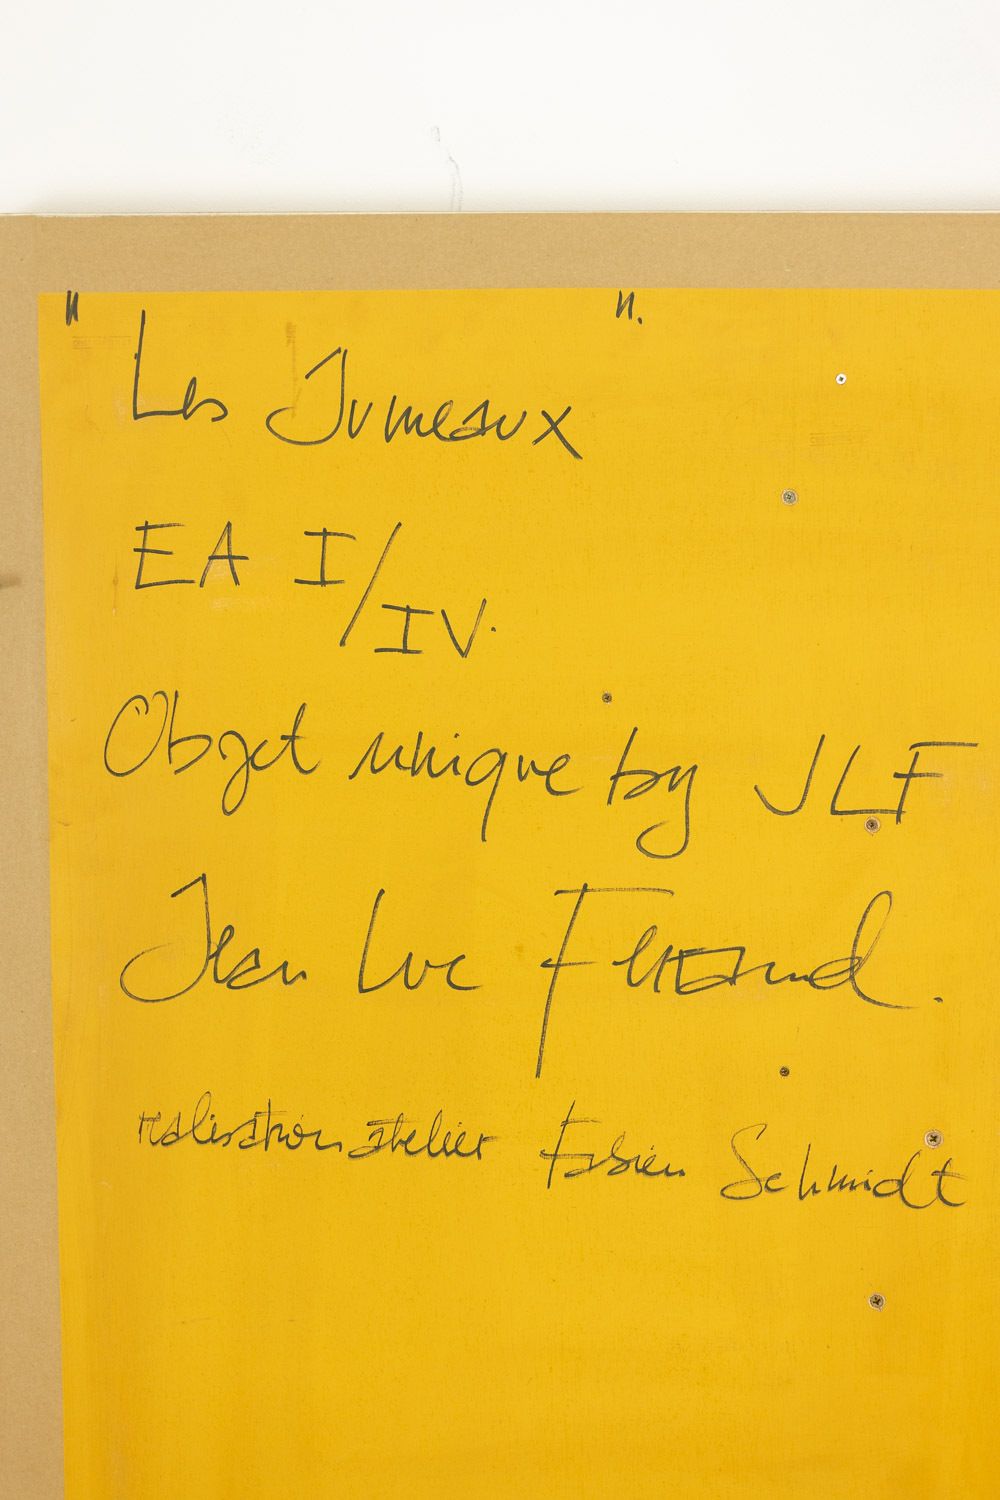 " Les Jumeaux ".
EA I/IV.
Objet unique by JLF
Jean Luc Ferrand.
réalisation atelier Fabien Schmidt